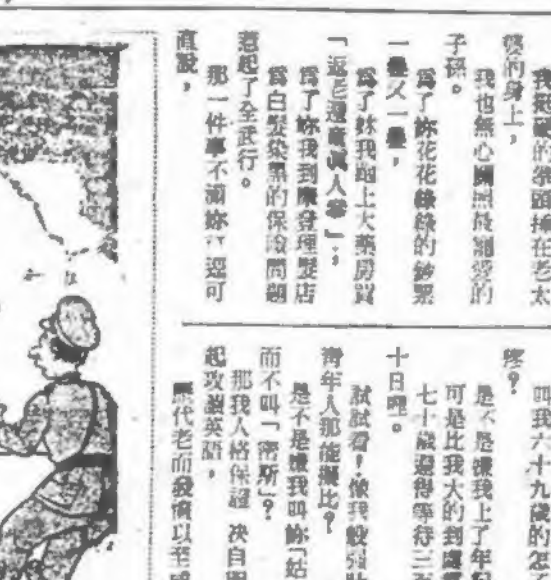 的 頭掉在老太
婆的身上,
我也無心關照最寵愛的
子孫。
爲了妳花花綠綠的鈔票
一疊又一疊,
爲了妳我跑上大藥房買
「返老還童 人 」;
爲了妳我到摩登理髮店
爲白髮染黑的保險問題
惹起了全武行。
那一件事不滿妳 還可
直說,
叫我六十九歲的怎
疼?
是不是嫌我上了年
可是比我大的到處
七十歲還得等待三
十日哩。
試試看,像我般强
靑年人那能 比?
是不是嫌我叫妳「姑
而不叫「密斯」?
那我人格保證 決自明
起攻讀英語,
歷代老而發憤以至成